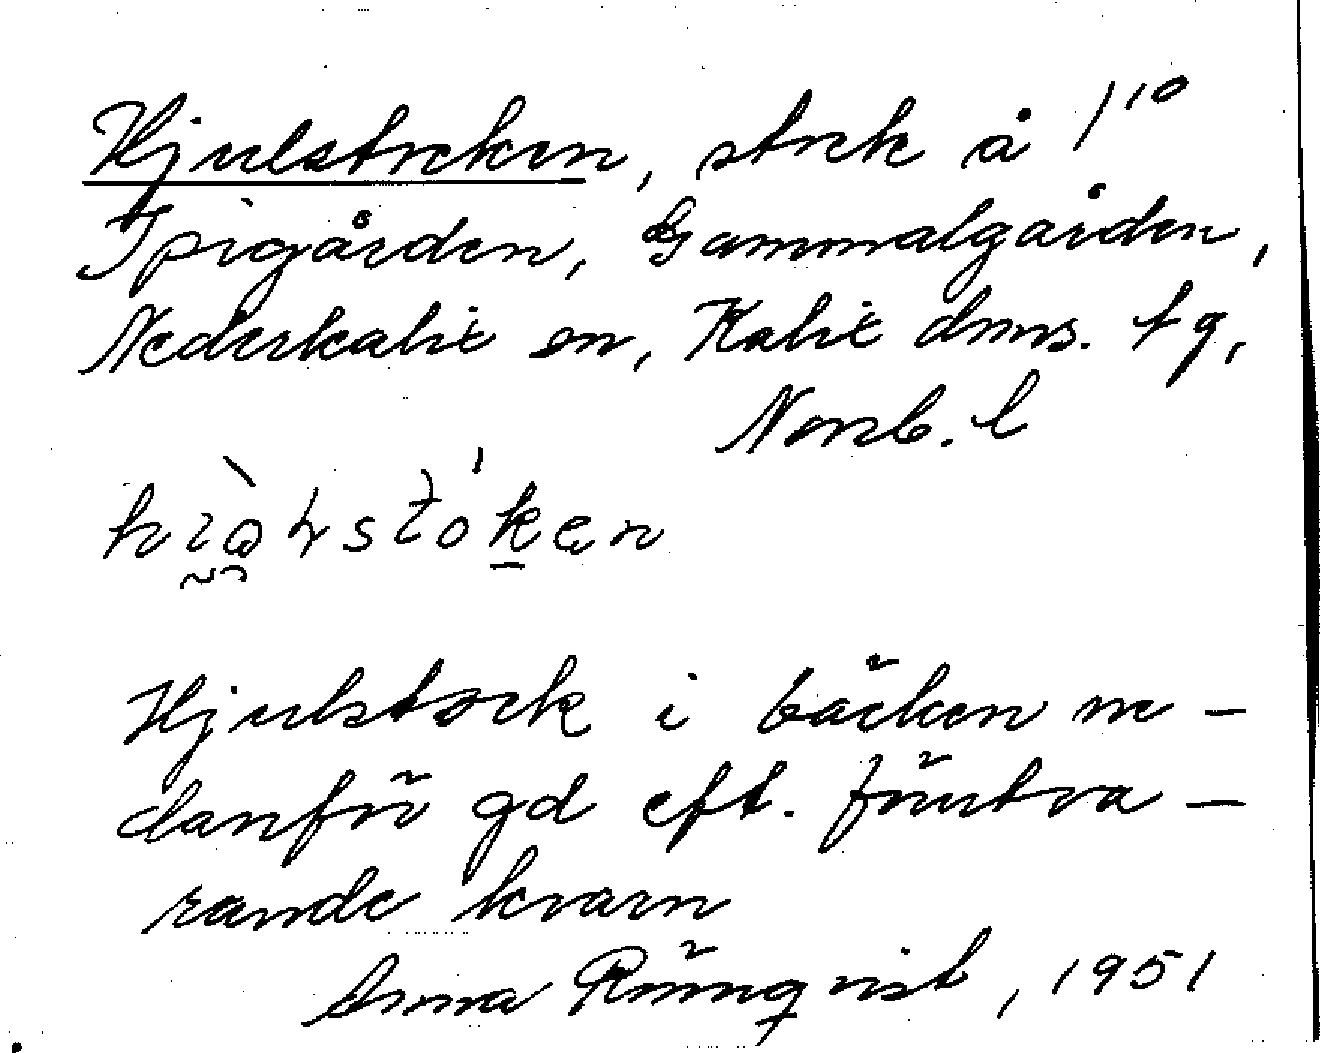 Hjulstocken, stock å 1/10
Spigården, Gammalgården,
Nederkalix sn, Kalix dms. tg,
Norrb. l
Hjulstock i bäcken ne-
danför gd eft. förutva-
rande kvarn
Anna Rönnqvist, 1951